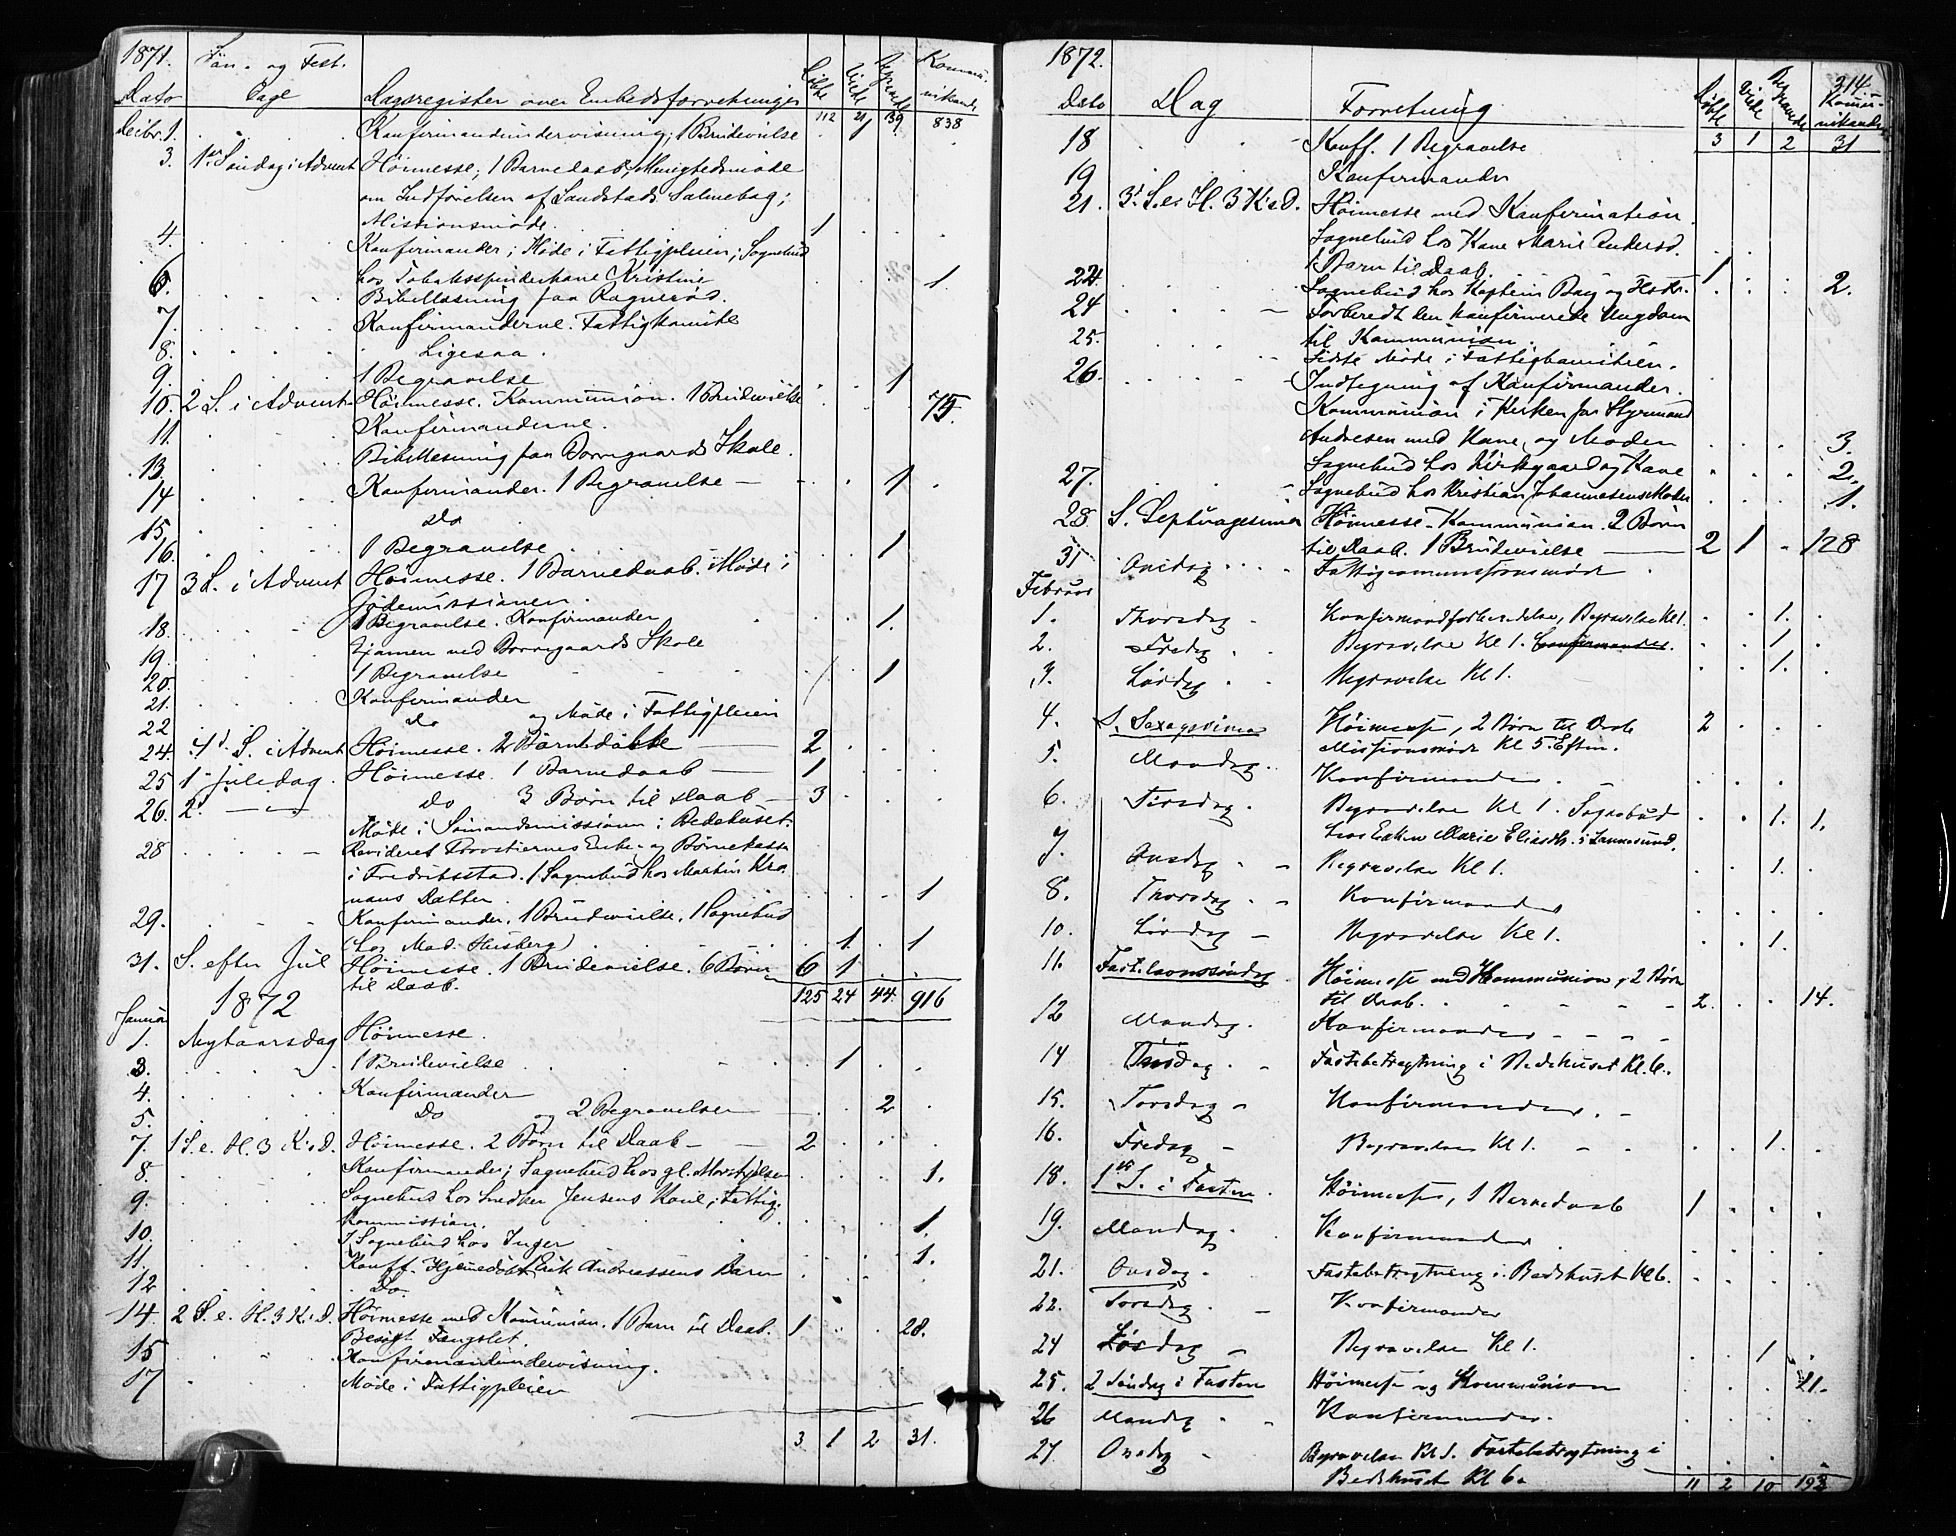 1871. Søn- og Fest.
Dato Dage Dagsregister over Embedsforretninger Døbte Viede Begravede Kommunikanter
112 21 39 838
Decbr. 1. Konfirmandundervisning; 1 Brudevielse 1
3. 1ste Søndag i Advent Høimesse; 1 Barnedaab, Menighedsmøde
om Indførelsen af Landstads Salmebog;
Missionsmøde. 1
4. Konfirmander; Møde i Fattigpleien; Sognebud
hos Tobaksspinderkone Kristine 1
6. Bibellæsning paa Ragnerød.
7. Konfirmanderne. Fattigkomite
8. Ligesaa.
9. 1 Begravelse 1
10. 2 S. i Advent Høimesse. Kommunion. 1 Brudevielse 75.
11. Konfirmanderne.
13. Bibellæsning paa Borregaards Skole.
14 Konfirmander. 1 Begravelse 1
15. Do
16. 1 Begravelse 1
17 3 S. i Advent Høimesse. 1 Barnedaab. Møde i
Jødemissionen.
18. 1 Begravelse. Konfirmander 1
19. Examen ved Borregaards Skole
20. 1 Begravelse 1
21. Konfirmander
22 Do og Møde i Fattigpleien
24. 4d S. i Advent Høimesse. 2 Barnedaabe 2
25 1 Juledag. Høimesse. 1 Barnedaab 1
26. 2. Do 3 Børn til Daab 3
Møde i Sømandsmissionen i Bedehuset.
28 Revideret Provstiernes Enke- og Børnekasse
i Fredriksstad. 1 Sognebud hos Martin
Datter. 1
29. Konfirmander. 1 Brudevielse. 1 Sognebud
(hos Mad. Heisberg) 1 1
31. S. efter Jul Høimesse. 1 Brudevielse. 6 Børn 6 1
til Daab.
125 24 44 916
1872
Januar
1. Nytaarsdag Høimesse.
3. 1 Brudevielse 1
4. Konfirmander
5. Do og 2 Begravelser 2
7. 1 S. e. H. 3 K. D. Høimesse. 2 Børn til Daab 2
8. Konfirmander; Sognebud hos gl. 1.
9. Sognebud hos Snedker Jensens Kone; Fattig-
kommission. 1.
10. 1 Sognebud hos Inger 1.
11. Konff. Hjemedøbt Erik Andreassens Barn
12 Do.
14. 2 S. e. H. 3 K. D. Høimesse med Kommunion. 1 Barn til Daab. 1 28.
Besøgt Fængslet.
15 Konfirmandundervisning.
17 Møde i Fattigpleien
3 1 2 31.
1872. 314.
Dato Dag Forretning Døbte Viede Begravede Kommunikanter
3 1 2 31
18 Konff. 1 Begravelse
19 Konfirmander
21. 3d S. e. H. 3 K. D. Høimesse med Konfirmation.
Sognebud hos Kone Marie Andersd.
1 Barn til Daab. 1
22. Sognebud hos Kaptein Bay og Hstr. 2.
24 Forberedt den konfirmerede Ungdom
til Kommunion.
25. Sidste Møde i Fattigkomiteen.
26. Indtegning af Konfirmander.
Kommunion i Kirken for Styrmand
Andresen med Kone og Moder 3.
Sognebud hos Kirkgaard og Kone 2.
27. Sognebud hos Kristian Johannesens Moder 1.
28. S. Septuagesima Høimesse. Kommunion. 2 Børn
til Daab. 1 Brudevielse 2 1 128
31 Onsdag Fattigcommissionsmøde
Februar
1. Thorsdag Konfirmandforberedelse, Begravelse Kl 1. 1.
2. Fredag Begravelse Kl 1. Confirmander. 1.
3. Lørdag Begravelse Kl 1. 1.
4. S. Sexagesima Høimesse, 2 Børn til Daab 2
Missionsmøde Kl 5. Eftm.
5. Mandag. Konfirmander.
6. Tirsdag. Begravelse Kl 1. Sognebud 1. 1.
hos Enken Marie Eliasdtr. i Sannesund.
7. Onsdag Begravelse Kl 1. 1.
8. Thorsdag Konfirmander
10. Lørdag Begravelse Kl 1. 1.
11. Fastelavnssøndag Høimesse med Kommunion, 2 Børn
til Daab. 2. 14.
12 Mandag. Konfirmander
14 Onsdag Fastebetragtning i Bedehuset Kl. 6.
15. Torsdag Konfirmander.
16. Fredag Begravelse Kl 1. 1.
18. 1ste S. i Fasten. Høimesse, 1 Barnedaab 1
19. Mandag. Konfirmander
21. Onsdag. Fastebetragtning i Bedehuset Kl 6.
22. Torsdag. Konfirmander
24 Lørdag Begravelse Kl 1. 1
25. 2 Søndag i Fasten Høimesse og Kommunion 21.
26 Mandag Konfirmander.
27. Onsdag Begravelse Kl 1. Fastebetragtning i
Bedehuset Kl 6.
11 2 10 193